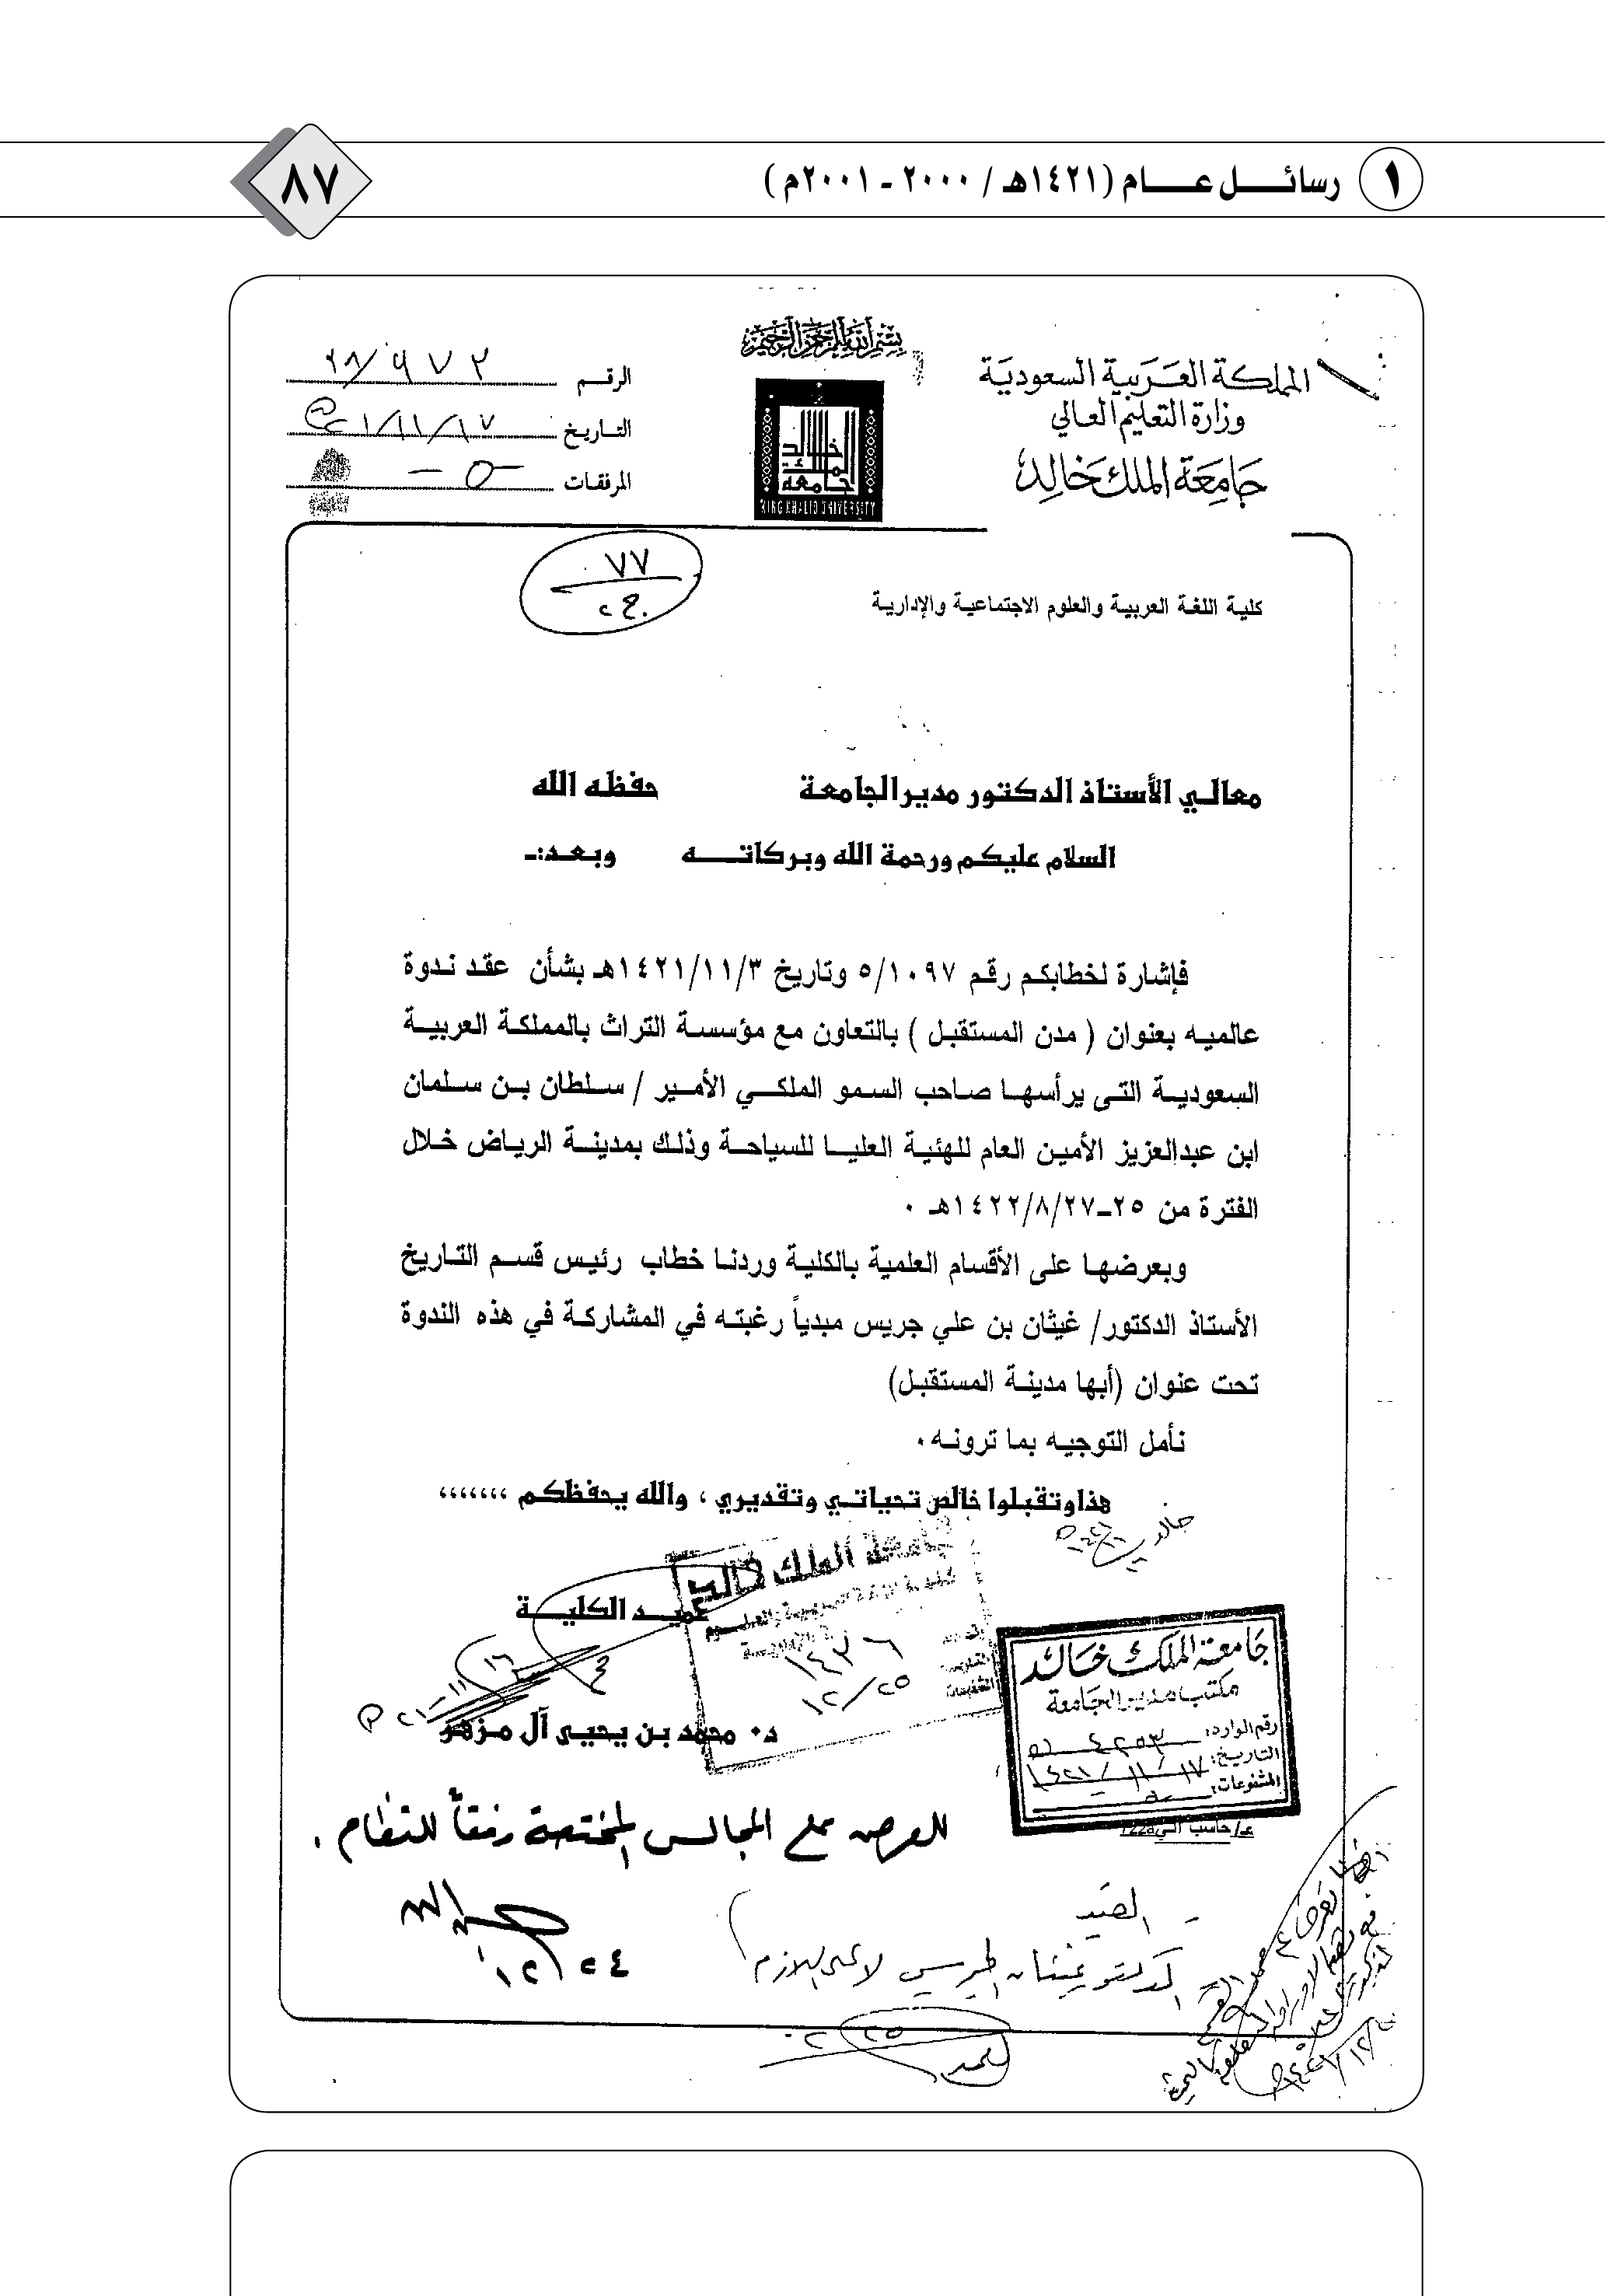 ١ رسائــــل عــــام (١٤٢١هـ / ٢٠٠٠ ـ ٢٠٠١م)
٨٧
بسم الله الرحمن الرحيم
المملكة العربية السعودية
وزارة التعليم العالي
جامعة الملك خالد
خالد
الملك
جامعة
KING KHALID UNIVERSITY
الرقـم ٢٨/٩٧٢
التـاريخ ٢١/١١/١٧
المرفقـات
٧٧
كلية اللغة العربية والعلوم الاجتماعية والإدارية
معالـي الأستاذ الدكتور مدير الجامعة حفظه الله
السلام عليكم ورحمة الله وبركاتـــه وبـعـد:ـ
فإشارة لخطابكم رقم ٥/١٠٩٧ وتاريخ ١٤٢١/١١/٣هـ بشأن عقد ندوة
عالميه بعنوان ( مدن المستقبل ) بالتعاون مع مؤسسة التراث بالمملكة العربية
السعودية التى يرأسها صاحب السمو الملكي الأمير / سلطان بن سلمان
ابن عبدالعزيز الأمين العام للهئية العليا للسياحة وذلك بمدينة الرياض خلال
الفترة من ٢٥ــ١٤٢٢/٨/٢٧هـ ٠
وبعرضها على الأقسام العلمية بالكلية وردنا خطاب رئيس قسم التاريخ
الأستاذ الدكتور/ غيثان بن علي جريس مبدياً رغبته في المشاركة في هذه الندوة
تحت عنوان (أبها مدينة المستقبل)
نأمل التوجيه بما ترونه٠
هذا وتقبلوا خالص تحياتي وتقديري ، والله يحفظكم ،،،،،،،
جامعة الملك خالد
عميـــد الكليـــة
١٤٣٦
١٢/٢٥
د٠ محمد بن يحيى آل مزهر
جامعة الملك خالد
مكتب مدير الجامعة
رقم الوارد: ٤٢٥٣
التاريخ: ١٤٢١/١١/١٧
المشفوعات:
للعرض على المجالس المختصة وفقاً للنظام .
١٢/٢٤
الدكتور غيثان الجريس لإكمال اللازم